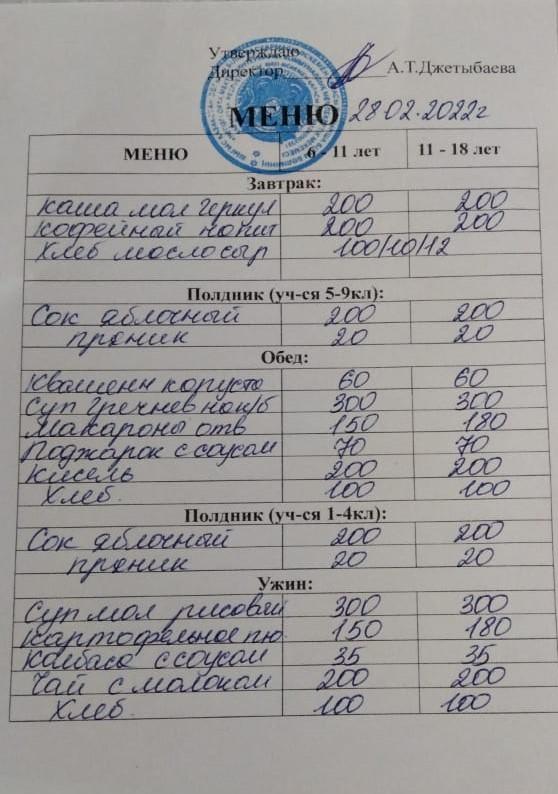 Утверждаю
Директор А.Т.Джетыбаева
МЕНЮ 28.02.2022г
МЕНЮ 6 - 11 лет 11 - 18 лет
Завтрак:
Каша мол геркул 200 200
Кофейный напит 200 200
Хлеб масло сыр 100/10/12
Полдник (уч-ся 5-9кл):
Сок яблочный 200 200
пряник 20 20
Обед:
Квашенн капуста 60 60
Суп гречнев на к/б 300 300
Макароны отв 150 180
Поджарок с соусом 70 70
Кисель 200 200
Хлеб. 100 100
Полдник (уч-ся 1-4кл):
Сок яблочный 200 200
пряник 20 20
Ужин:
Суп мол рисовый 300 300
Картофельное пю. 150 180
Колбаса с соусом 35 35
Чай с молоком 200 200
Хлеб. 100 100